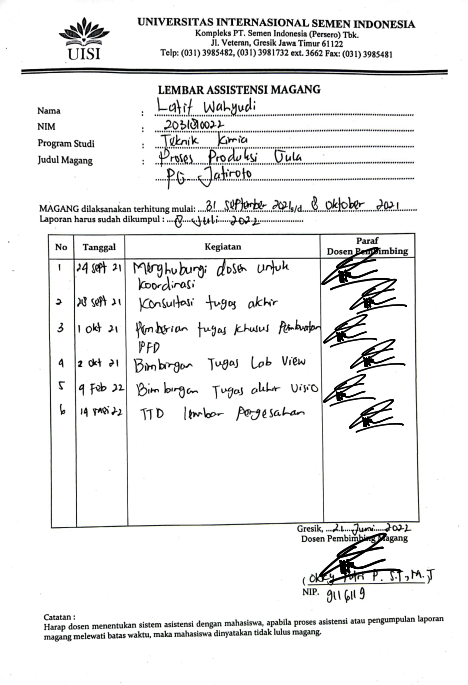 UISI
UNIVERSITAS INTERNASIONAL SEMEN INDONESIA
Kompleks PT. Semen Indonesia (Persero) Tbk.
Jl. Veteran, Gresik Jawa Timur 61122
Telp: (031) 3985482, (031) 3981732 ext. 3662 Fax: (031) 3985481
LEMBAR ASSISTENSI MAGANG
Nama : Latif Wahyudi
NIM :
Program Studi : Teknik Kimia
Judul Magang : Proses Produksi Gula
PG Jatiroto
MAGANG dilaksanakan terhitung mulai: 31 September 2021 s/d 8 Oktober 2021
Laporan harus sudah dikumpul : 8 Juli 2022
No Tanggal Kegiatan Paraf Dosen Pembimbing
1 24 Sept 21 Menghubungi dosen untuk
koordinasi
2 28 Sept 21 Konsultasi tugas akhir
3 1 Okt 21 Pemberian tugas khusus Pembuatan
PFD
4 2 Okt 21 Bimbingan Tugas Lab View
5 9 Feb 22 Bimbingan Tugas akhir Visio
6 14 22 TTD lembar Pengesahan
Gresik, 21 Juni 2022
Dosen Pembimbing Magang
(Okky Putri P. S.T., M.T
NIP. 9116119
Catatan :
Harap dosen menentukan sistem asistensi dengan mahasiswa, apabila proses asistensi atau pengumpulan laporan
magang melewati batas waktu, maka mahasiswa dinyatakan tidak lulus magang.